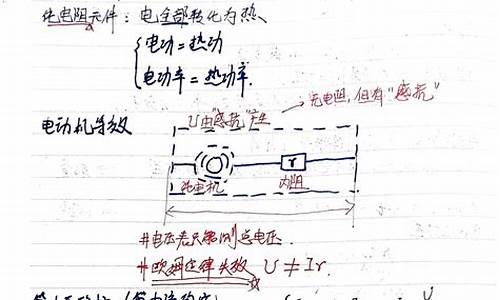 纯电阻元件：电全部转化为热、
电功＝热功
电功率＝热功率.
无电阻,但有"感抗"
电动机等效
U由"感抗"产生
r
纯电机 内阻
#电压表只能测总电压.
#欧姆定律失效 U≠Ir.